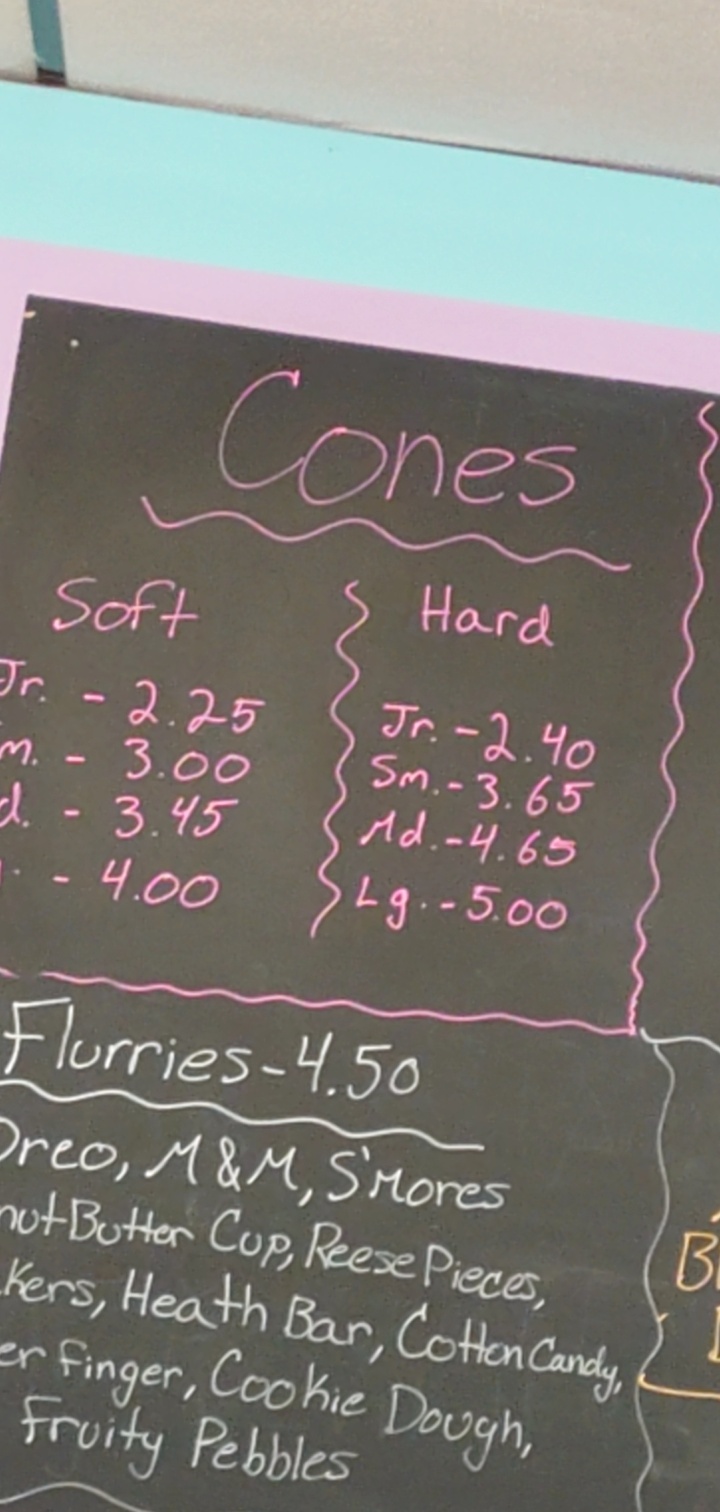 Cones
Soft
Jr. - 2.25
m. - 3.00
d. - 3.45
- 4.00
Hard
Jr. - 2.40
Sm. - 3.65
Md. - 4.65
Lg. - 5.00
Flurries - 4.50
Oreo, M&M, S'Mores
nut Butter Cup, Reese Pieces,
kers, Heath Bar, Cotton Candy,
er finger, Cookie Dough,
Fruity Pebbles